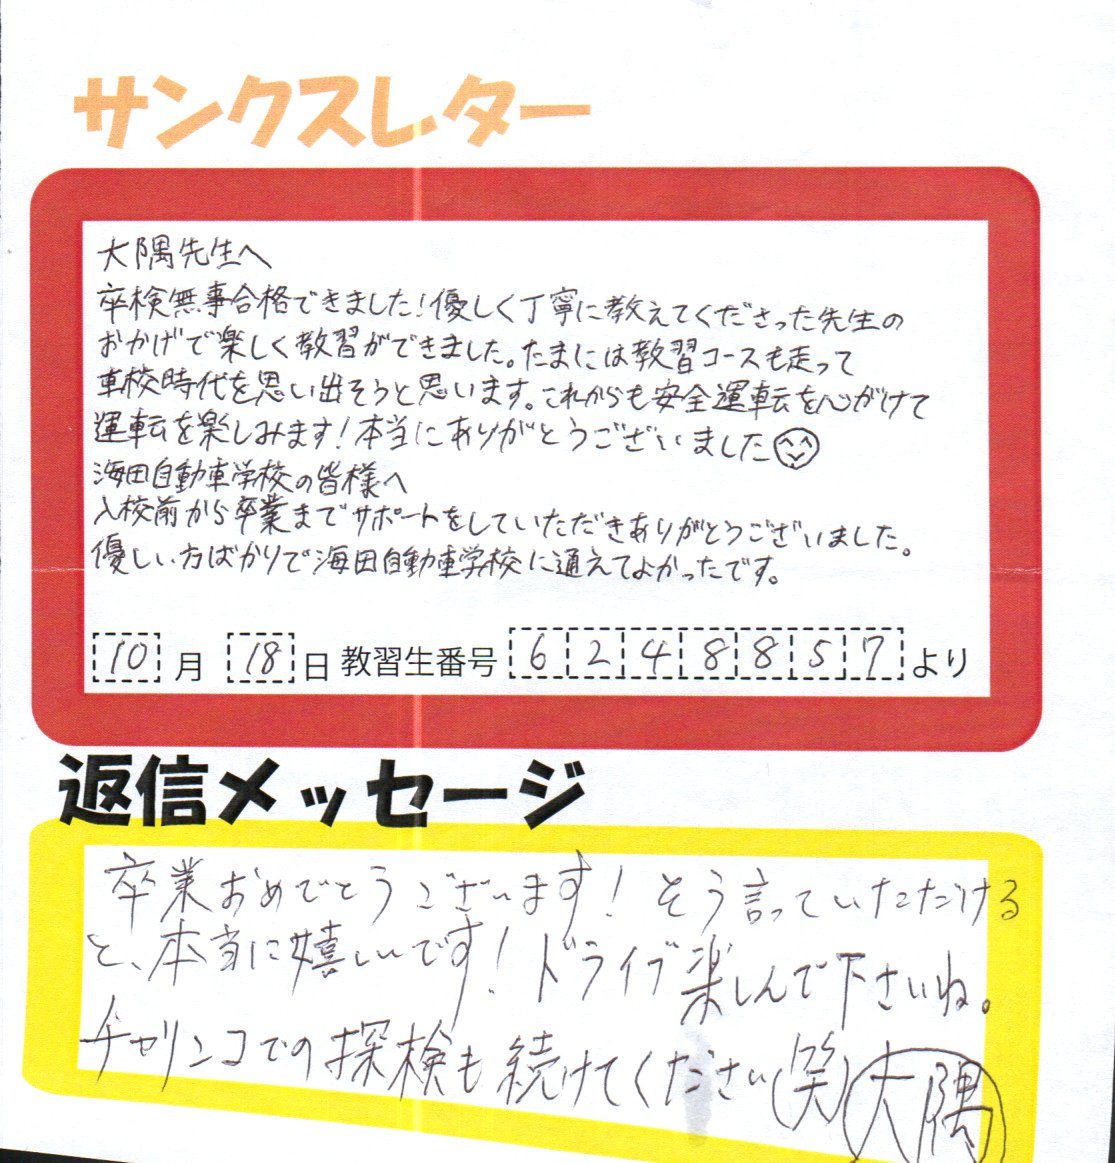 サンクスレター
大隅先生へ
卒検無事合格できました!優しく丁寧に教えてくださった先生の
おかげで楽しく教習ができました。たまには教習コースも走って
車校時代を思い出そうと思います。これからも安全運転を心がけて
運転を楽しみます!本当にありがとうございました
海田自動車学校の皆様へ
入校前から卒業までサポートをしていただきありがとうございました。
優しい方ばかりで海田自動車学校に通えてよかったです。
10月 18日 教習生番号 6248857より
返信メッセージ
卒業おめでとうございます!そう言っていただける
と、本当に嬉しいです!ドライブ楽しんで下さいね。
チャリンコでの探検も続けてください(笑)大隅